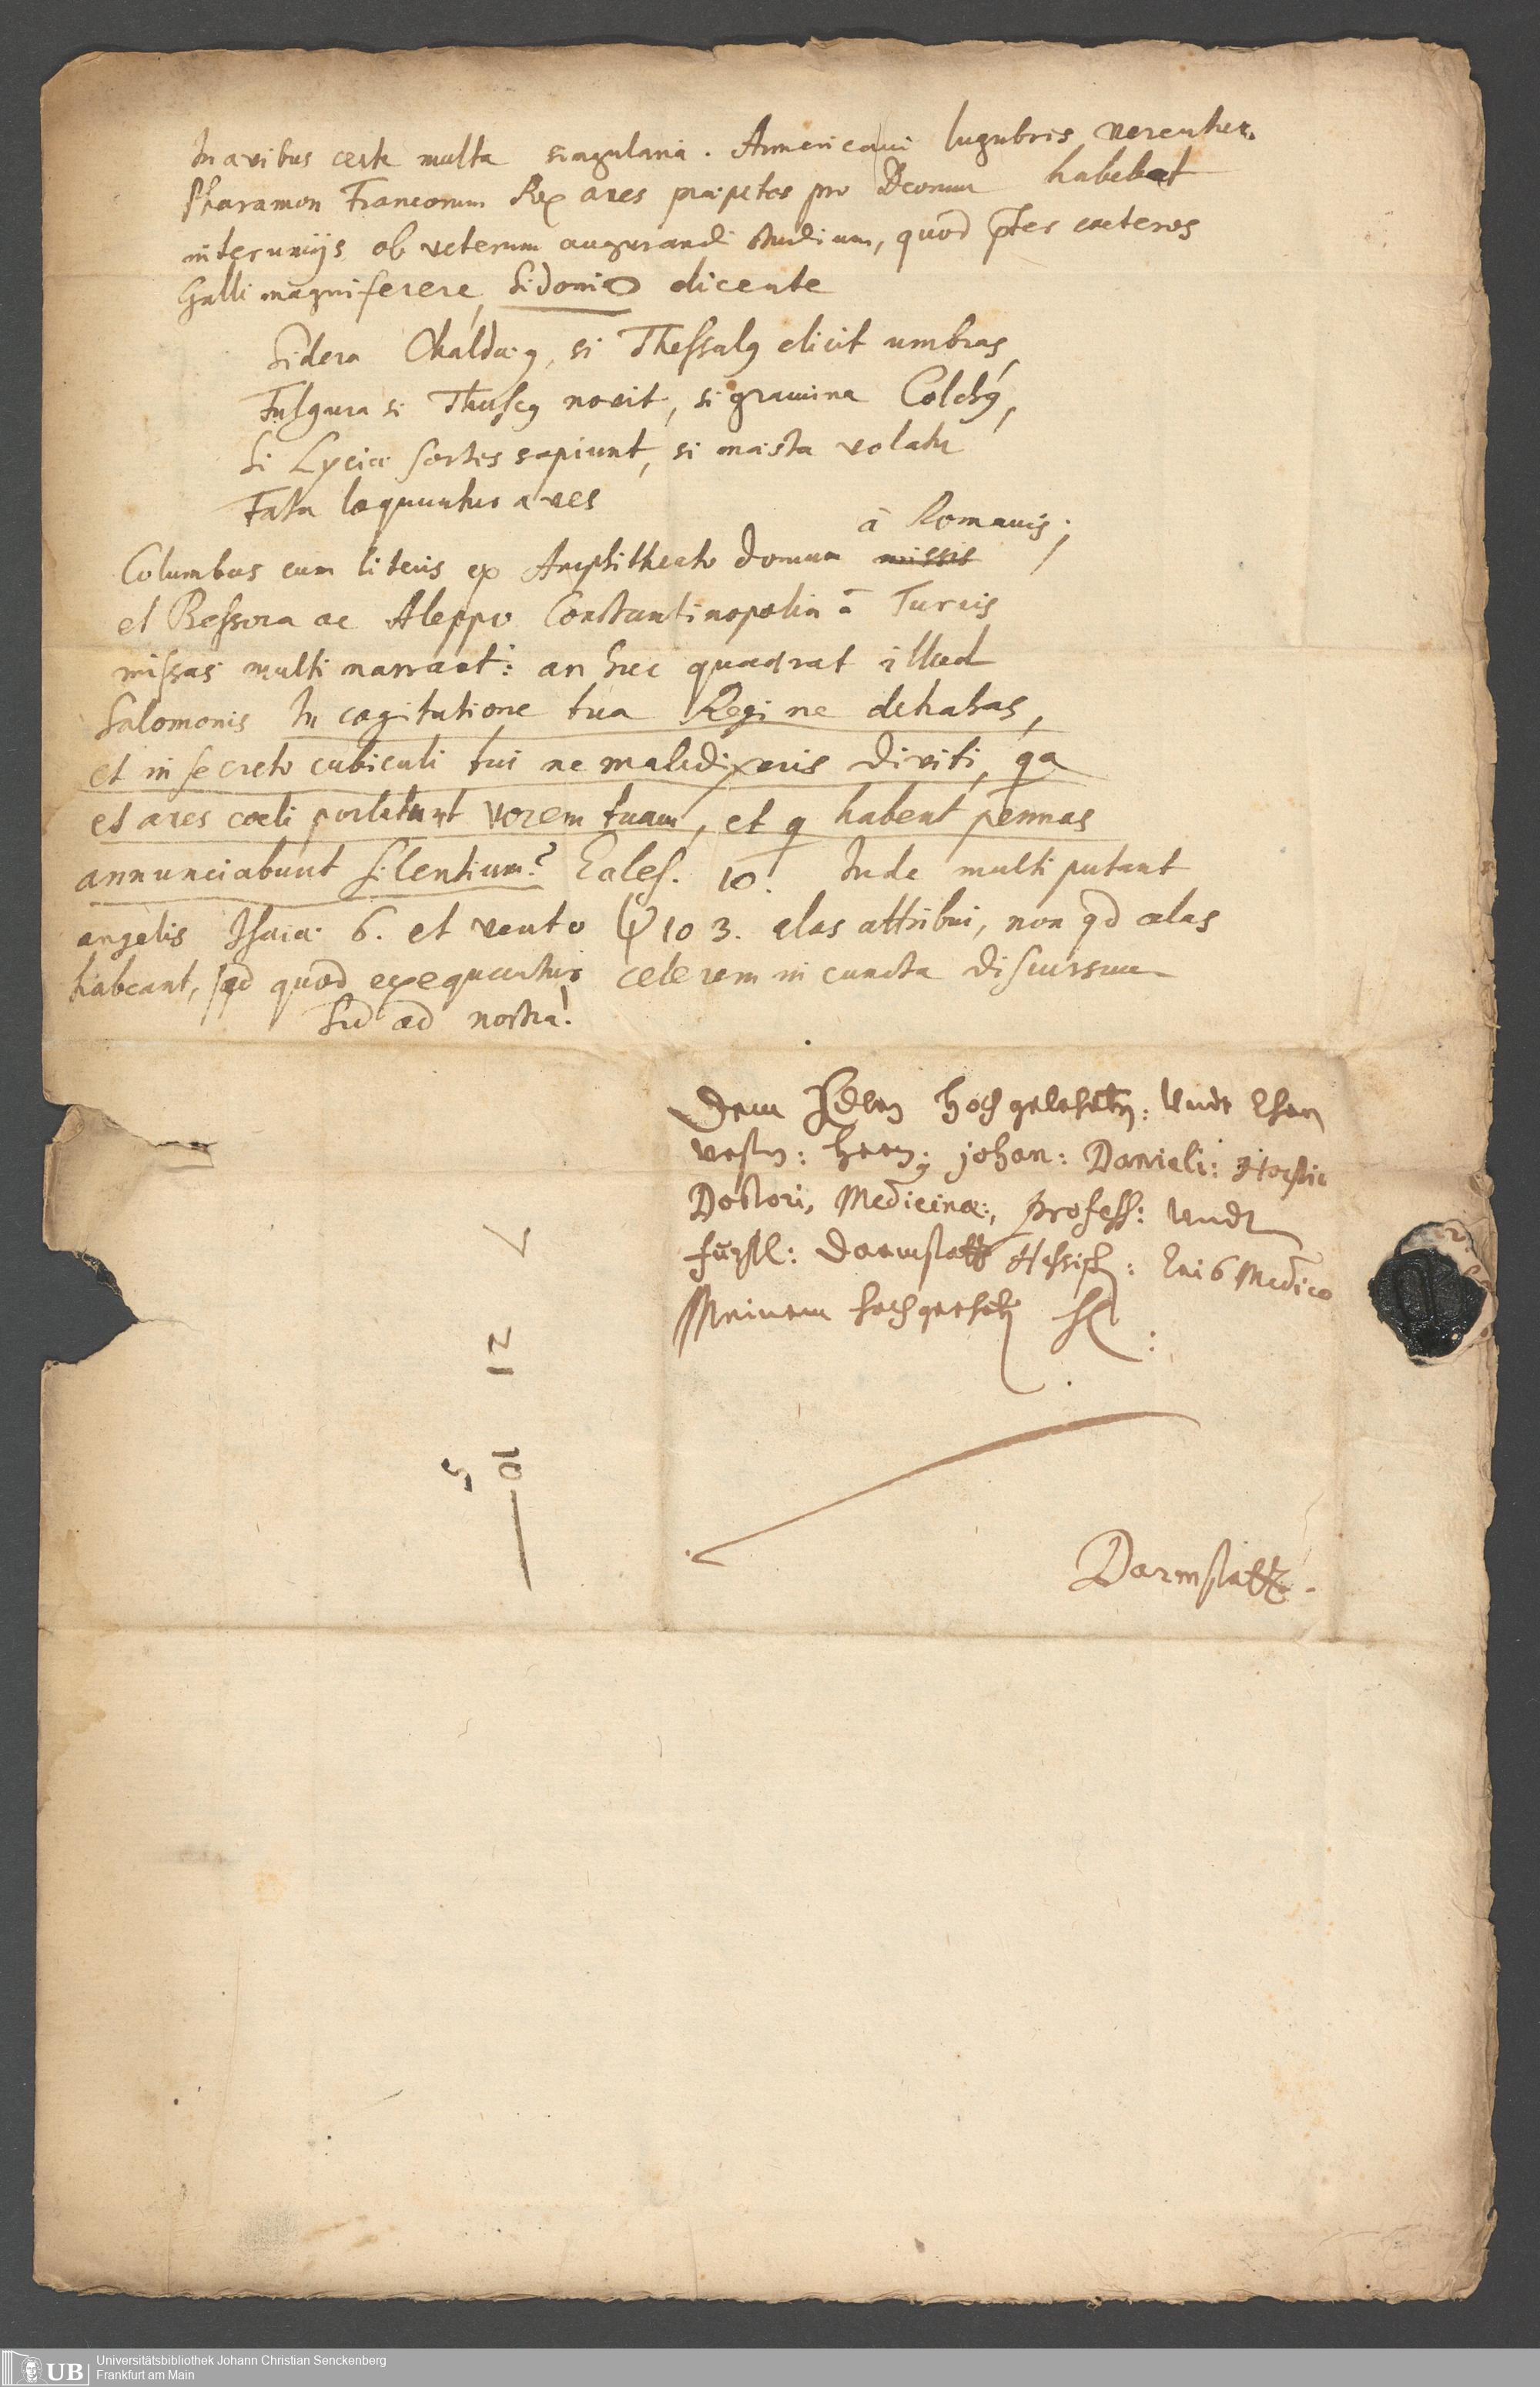 In avibus certe multa singularia. Americani lugubres verentur.
Pharamon Francorum Rex aves præpetes pro Deorum habebat
internuncijs ob veterum augurandi studium, quod pter cæteros
Galli magnifecere, Sidonio dicente
Sidera Chaldæ9, si Thessal9 elicit umbras,
Fulgura si Thusc9 novit, si gramina Colch9,
Si Lyciæ sortes sapiunt, si mæsta volatu
Fata loquuntur aves
à Romanis;
Columbas cum literis ex Amphitheatro domum missis
et Bessora ac Aleppo Constantinopolin à Turcis
missas multi narrant: an huc quadrat illud
Salomonis In cogitatione tua Regi ne detrahas,
et in secreto cubiculi tui ne maledixeris diviti, qa
et aves cœli portabunt vocem tuam, et q habent pennas
annunciabunt silentium? Eccles. 10. Inde multi putant
angelis Isaiæ 6. et vento ψ 103. alas attribui, non qd alas
habeant, sed quod exequantur celerem in cuncta discursum
Sed ad nostra!
Dem Edlen hochgelehrten: Undt Ehren
vesten: Herrn: Johan: Danieli: Horstio
Doctori, Medicinæ:, Profess: Undt
fürstl: Darmstatt Hessisch: Leib Medico
Meinem hochgeehrten H:
7
12
10
5
Darmstatt.
UB
Universitätsbibliothek Johann Christian Senckenberg
Frankfurt am Main